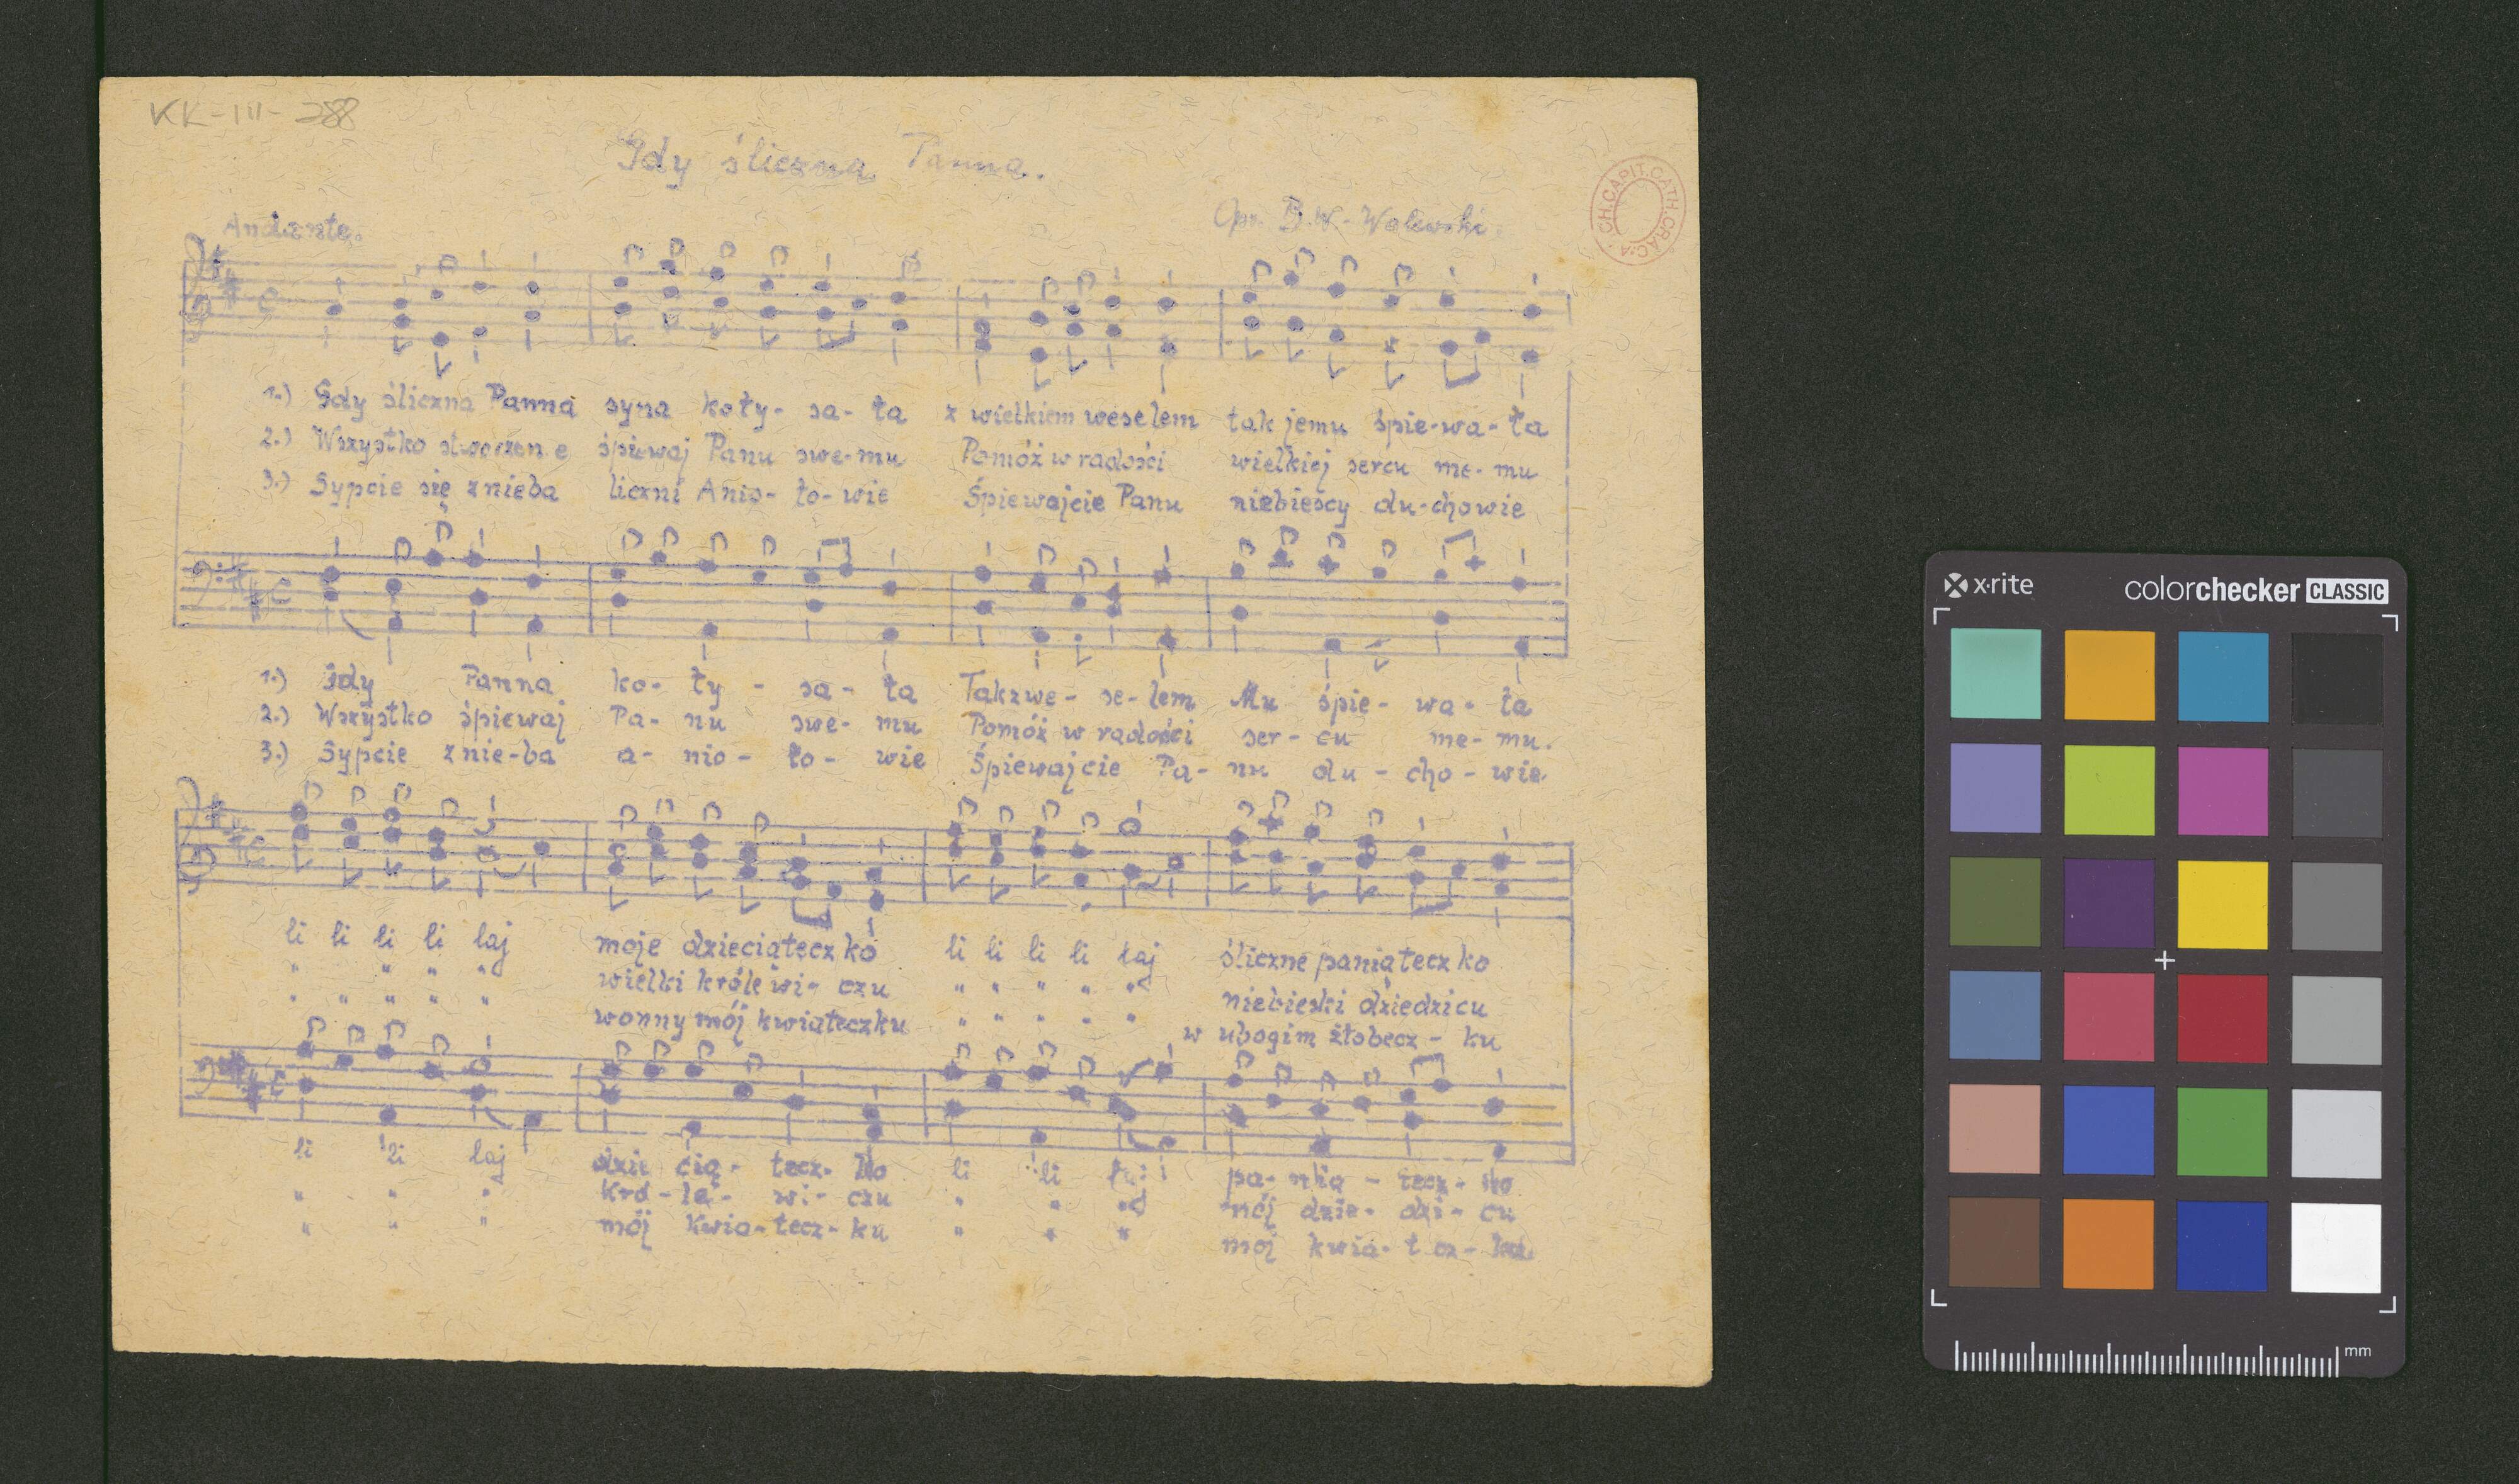 KK-III-288
Gdy śliczna Panna.
Andante.
Opr. B.W-Walewski.
CH.CAPIT.CATH.CRAC.A
1.) Gdy śliczna Panna syna koły- sa- ła z wielkiem weselem tak jemu śpie-wa-ła
2.) Wszystko stworzen e śpiewaj Panu swe-mu Pomóż w radości wielkiej sercu me-mu
3.) Sypcie się z nieba liczni Anio-ło-wie Śpiewajcie Panu niebiescy du-chowie
1.) Gdy Panna ko- ły - sa- ła Tak z we- se-lem Mu śpie- wa- ła
2.) Wszystko śpiewaj Pa- nu swe- mu Pomóż w radości ser- cu me- mu.
3.) Sypcie z nie-ba a- nio- ło- wie Śpiewajcie Pa- nu du- cho- wie
li li li li laj moje dzieciąteczko li li li li laj śliczne paniąteczko
" " " " wielki królewi- czu " " " " " niebieski dziedzicu
" " " " " wonny mój kwiateczku " " " " " w ubogim żłobecz- ku
li li laj dzie cią- tecz- ko li li pa- nią - tecz- ko
" " " Kró-le- wi- czu " " " mój dzie- dzi- cu
" " " mój Kwia-tecz-ku " " " mój kwia- t cz- ku
x·rite
colorchecker CLASSIC
mm